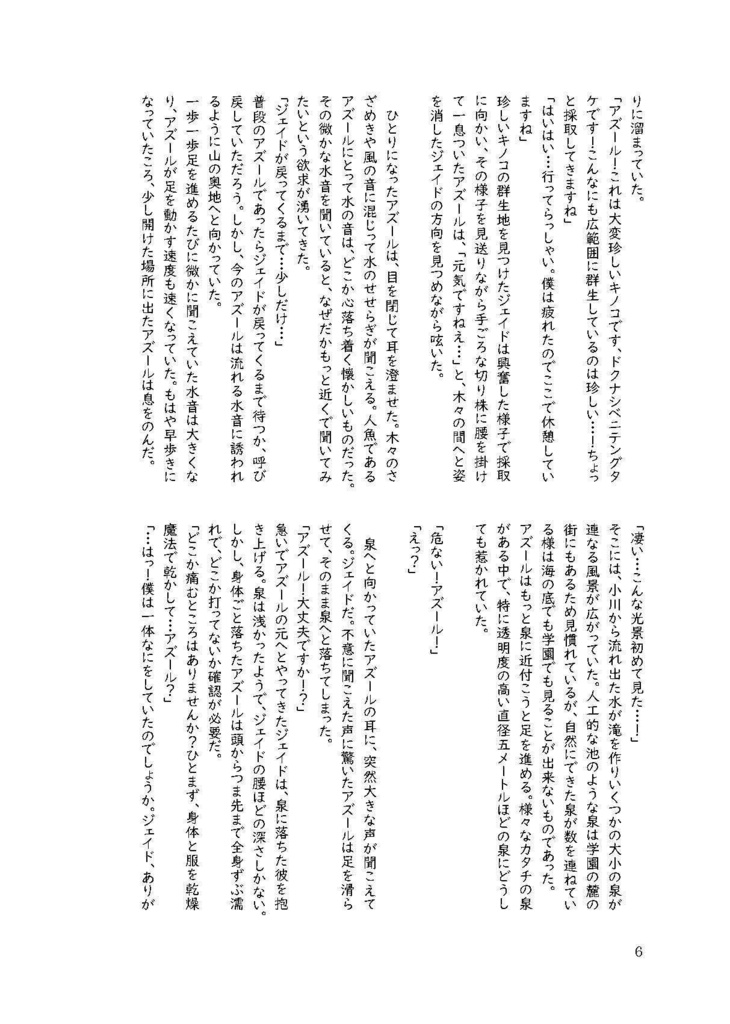 りに溜まっていた。
「アズール！これは大変珍しいキノコです、ドクナシベニテングタ
ケです！こんなにも広範囲に群生しているのは珍しい…！ちょっ
と採取してきますね」
「はいはい…行ってらっしゃい。僕は疲れたのでここで休憩してい
ますね」
珍しいキノコの群生地を見つけたジェイドは興奮した様子で採取
に向かい、その様子を見送りながら手ごろな切り株に腰を掛け
て一息ついたアズールは、「元気ですねえ…」と、木々の間へと姿
を消したジェイドの方向を見つめながら呟いた。
ひとりになったアズールは、目を閉じて耳を澄ませた。木々のさ
ざめきや風の音に混じって水のせせらぎが聞こえる。人魚である
アズールにとって水の音は、どこか心落ち着く懐かしいものだった。
その微かな水音を聞いていると、なぜだかもっと近くで聞いてみ
たいという欲求が湧いてきた。
「ジェイドが戻ってくるまで…少しだけ…」
普段のアズールであったらジェイドが戻ってくるまで待つか、呼び
戻していただろう。しかし、今のアズールは流れる水音に誘われ
るように山の奥地へと向かっていた。
一歩一歩足を進めるたびに微かに聞こえていた水音は大きくな
り、アズールが足を動かす速度も速くなっていた。もはや早歩きに
なっていたころ、少し開けた場所に出たアズールは息をのんだ。
「凄い…こんな光景初めて見た…！」
そこには、小川から流れ出た水が滝を作りいくつかの大小の泉が
連なる風景が広がっていた。人工的な池のような泉は学園の麓の
街にもあるため見慣れているが、自然にできた泉が数を連ねてい
る様は海の底でも学園でも見ることが出来ないものであった。
アズールはもっと泉に近付こうと足を進める。様々なカタチの泉
がある中で、特に透明度の高い直径五メートルほどの泉にどうし
ても惹かれていた。
「危ない！アズール！」
「えっ？」
泉へと向かっていたアズールの耳に、突然大きな声が聞こえて
くる。ジェイドだ。不意に聞こえた声に驚いたアズールは足を滑ら
せて、そのまま泉へと落ちてしまった。
「アズール！大丈夫ですか！？」
急いでアズールの元へとやってきたジェイドは、泉に落ちた彼を抱
き上げる。泉は浅かったようで、ジェイドの腰ほどの深さしかない。
しかし、身体ごと落ちたアズールは頭からつま先まで全身ずぶ濡
れで、どこか打ってないか確認が必要だ。
「どこか痛むところはありませんか？ひとまず、身体と服を乾燥
魔法で乾かして…アズール？」
「…はっ！僕は一体なにをしていたのでしょうか。ジェイド、ありが
6